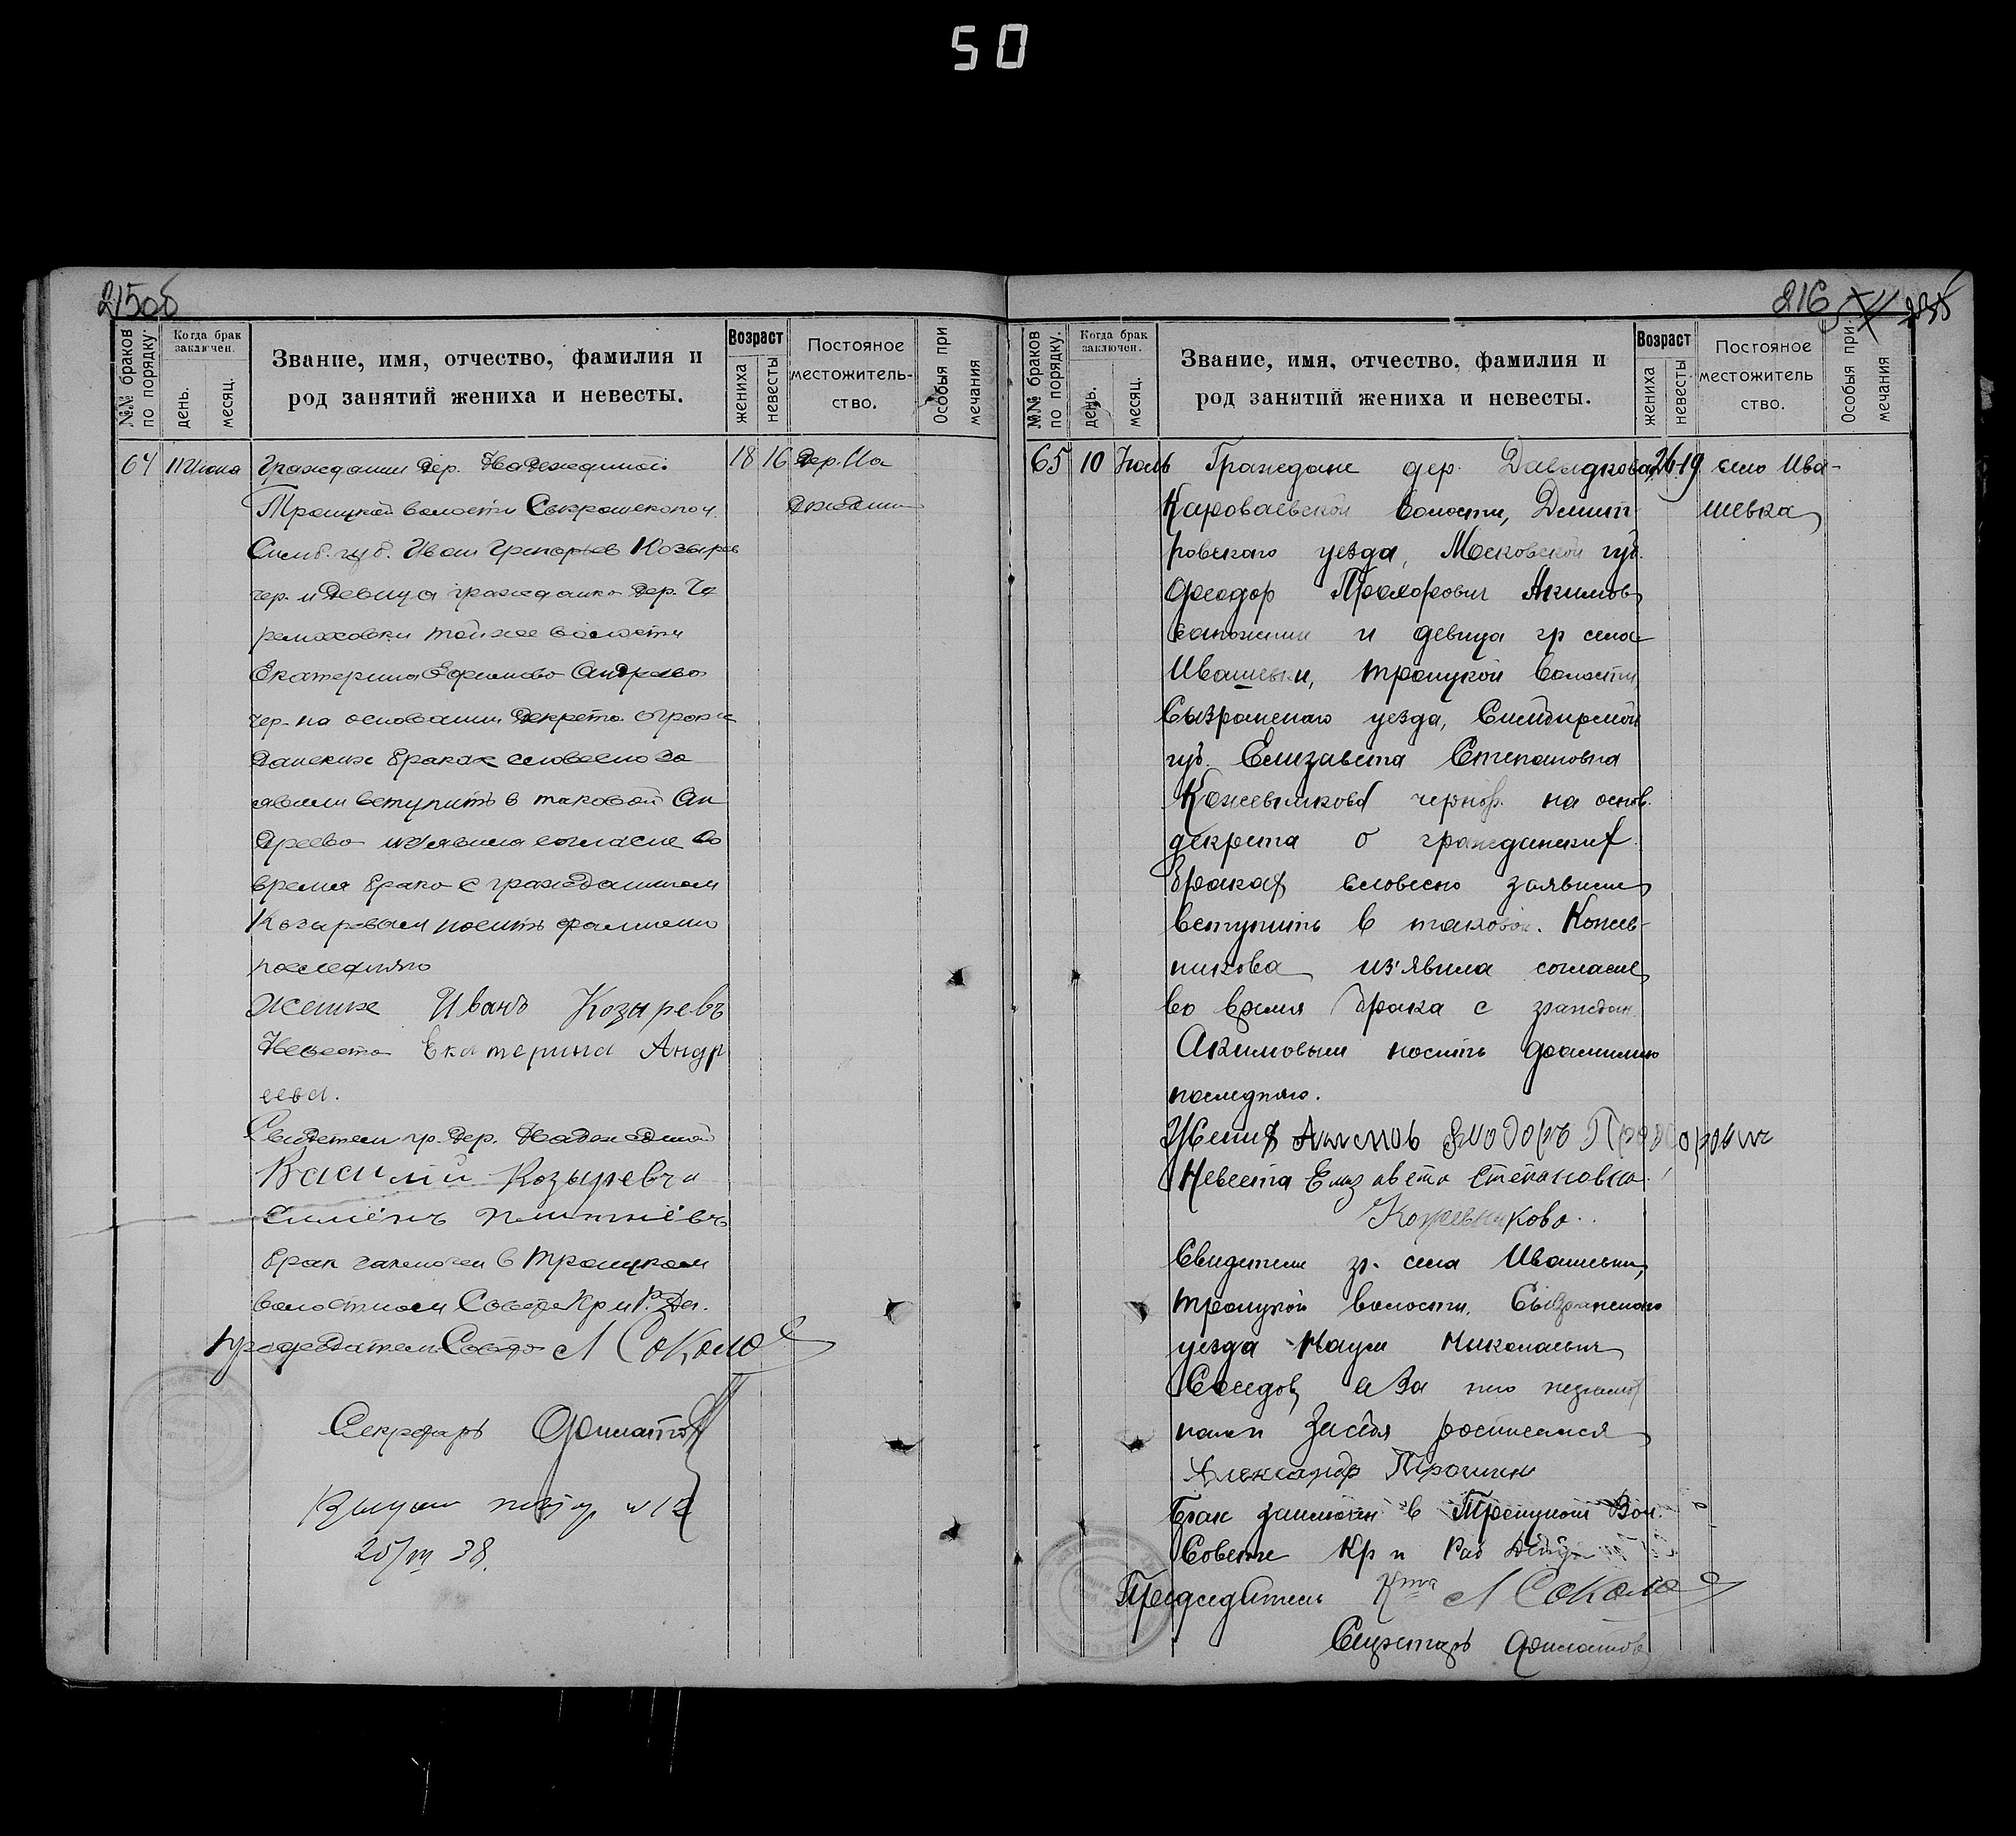 50
215об
№№ браков по порядку.
Когда брак заключен.
день.
месяц.
Звание, имя, отчество, фамилия и
род занятий жениха и невесты.
Возраст
жениха
невесты
Постояное
местожитель-
ство.
Особыя при
мечания
64 11 Июня Гражданин дер. Надеждиной 18 16 дер.
Троицкой волости Сызранского у.
Симб. губ. Иван Григорьев Козырев
чер. и девица гражданка дер. Че
ремховки той же волости
Екатерина Ефимова Андреева
чер. на основании декрета о граж
данских браках словесно за
явили вступить в таковой Ан
дреева из'явила согласие во
время брака с гражданином
Козыревым носить фамилию
последняго
Жених Иванъ Козыревъ
Невеста Екатерина Андр
еева.
Свидетели гр. дер. Надеждиной
Василий Козыревъ и
Симёнъ
Брак заключен в Троицком
волостном Совете Кр и Р. Де.
Председатель Совета Л Соколов
Секретарь Филатов
25/III 38.
216
№№ браков по порядку.
Когда брак заключен.
день.
месяц.
Звание, имя, отчество, фамилия и
род занятий жениха и невесты.
Возраст
жениха
невесты
Постояное
местожитель
ство.
Особыя при-
мечания
65 10 Июль Граждане дер. Давыдкова 26 19 село Ива-
Караваевской волости, Дмит- шевка
ровскаго уезда, Московской губ.
Феодор Прохорович Акимов
сапожник и девица гр села
Ивашевки, Троицкой волости
Сызранскаго уезда, Симбирской
губ. Елизавета Степановна
Кожевникова чернор. на основ.
декрета о гражданских
браках словесно заявили
вступить в таковой. Кожев-
никова из'явила согласие
во время брака с граждан.
Акимовым носить фамилию
последняго.
Жених Акимовъ Феодоръ Прохорович
Невеста Елизавета Степановна
Кожевникова..
Свидетели гр. села Ивашевки,
Троицкой волости, Сызранскаго
уезда Наум Николаевич
Соседов, а за него неграмот
наго и за себя росписался
Александр Трошин
Брак заключен в Троицком Вол.
Совете Кр и Раб Депут
Председатель Л Соколов
Секретарь Филатов